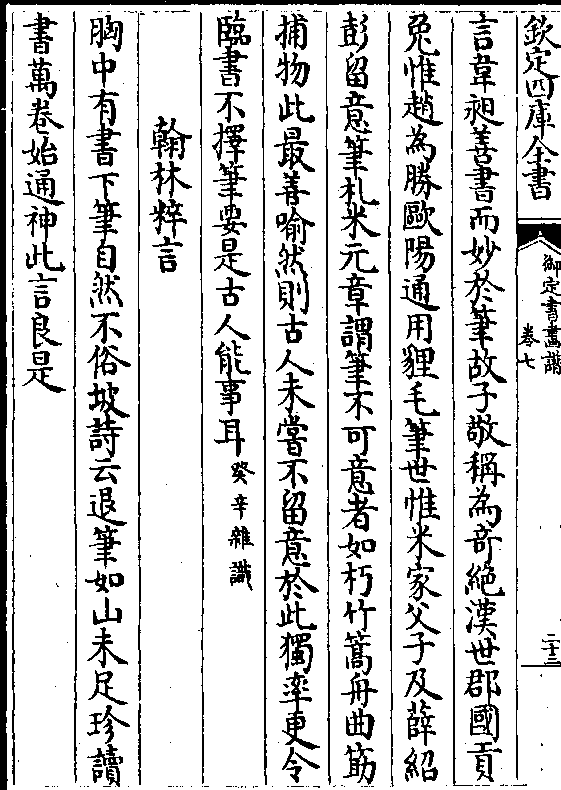 欽定四庫全書
御定書畫譜
卷七
二十三
言韋昶善書而妙於筆故子敬稱為竒絶漢世郡國貢
兎惟趙為勝歐陽通用貍毛筆世惟米家父子及薛紹
彭留意筆札米元章謂筆不可意者如朽竹篙舟曲筯
捕物此最善喻然則古人未嘗不留意於此獨率更令
臨書不擇筆要是古人能事耳癸辛雜識
翰林粹言
胸中有書下筆自然不俗坡詩云退筆如山未足珍讀
書萬卷始通神此言良是